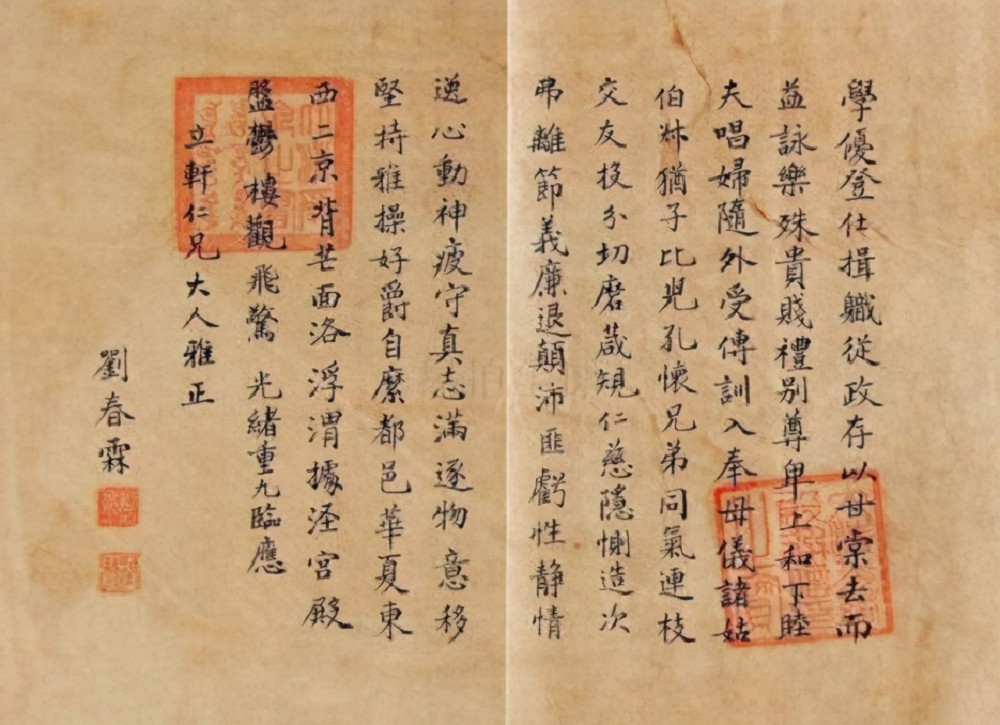 學優登仕揖軄從政存以甘棠去而
益詠樂殊貴賤禮别尊卑上和下睦
夫唱婦隨外受傅訓入奉母儀諸姑
伯叔猶子比兒孔懷兄弟同氣連枝
交友投分切磨箴規仁慈隱惻造次
弗離節義廉退顛沛匪虧性静情
逸心動神疲守真志滿逐物意移
堅持雅操好爵自縻都邑華夏東
西二京背芒面洛浮渭據涇宮殿
盤鬱樓觀飛驚 光緒重九臨應
立軒仁兄大人雅正
劉春霖